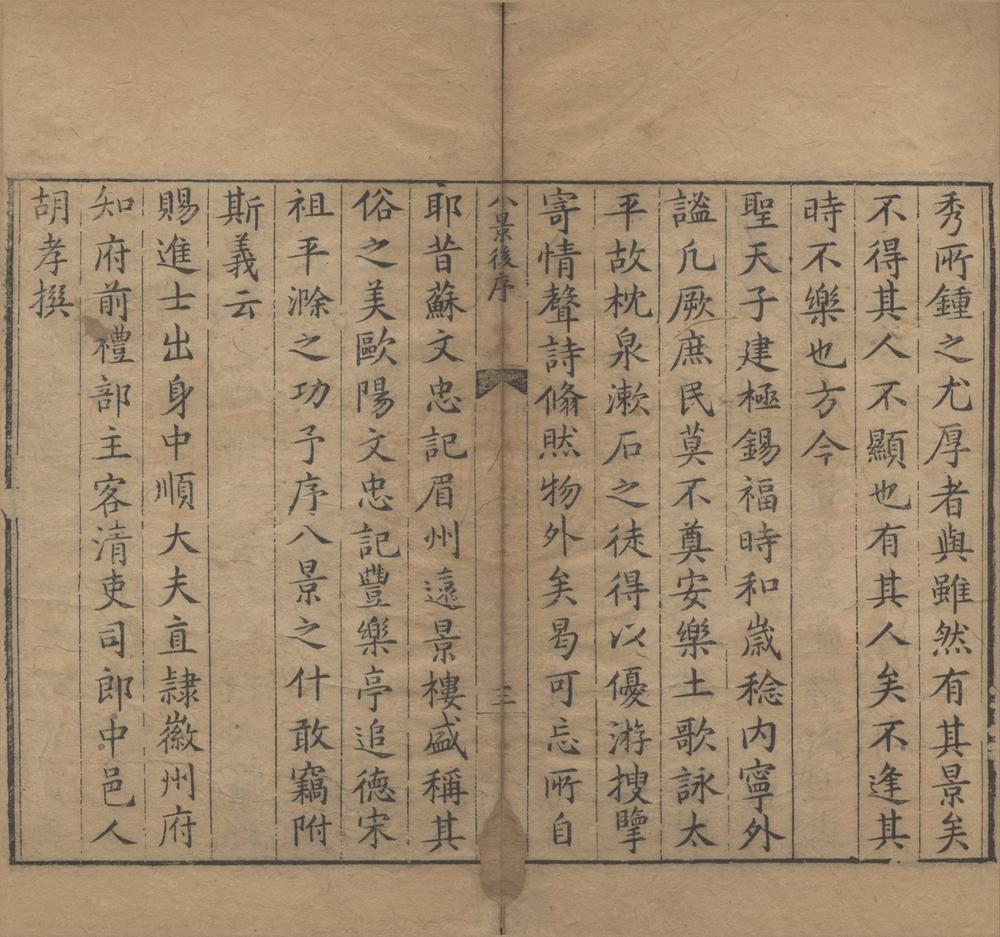 秀所鍾之尤厚者與雖然有其景矣
不得其人不顯也有其人矣不逢其
時不樂也方今
聖天子建極錫福時和歲稔内寧外
謐凡厥庶民莫不奠安樂土歌詠太
平故枕泉漱石之徒得以優游搜擥
寄情聲詩翛然物外矣曷可忘所自
八景後序
三
耶昔蘇文忠記眉州遠景樓盛稱其
俗之美歐陽文忠記豐樂亭追德宋
祖平滁之功予序八景之什敢竊附
斯義云
賜進士出身中順大夫直隸徽州府
知府前禮部主客清吏司郎中邑人
胡孝撰